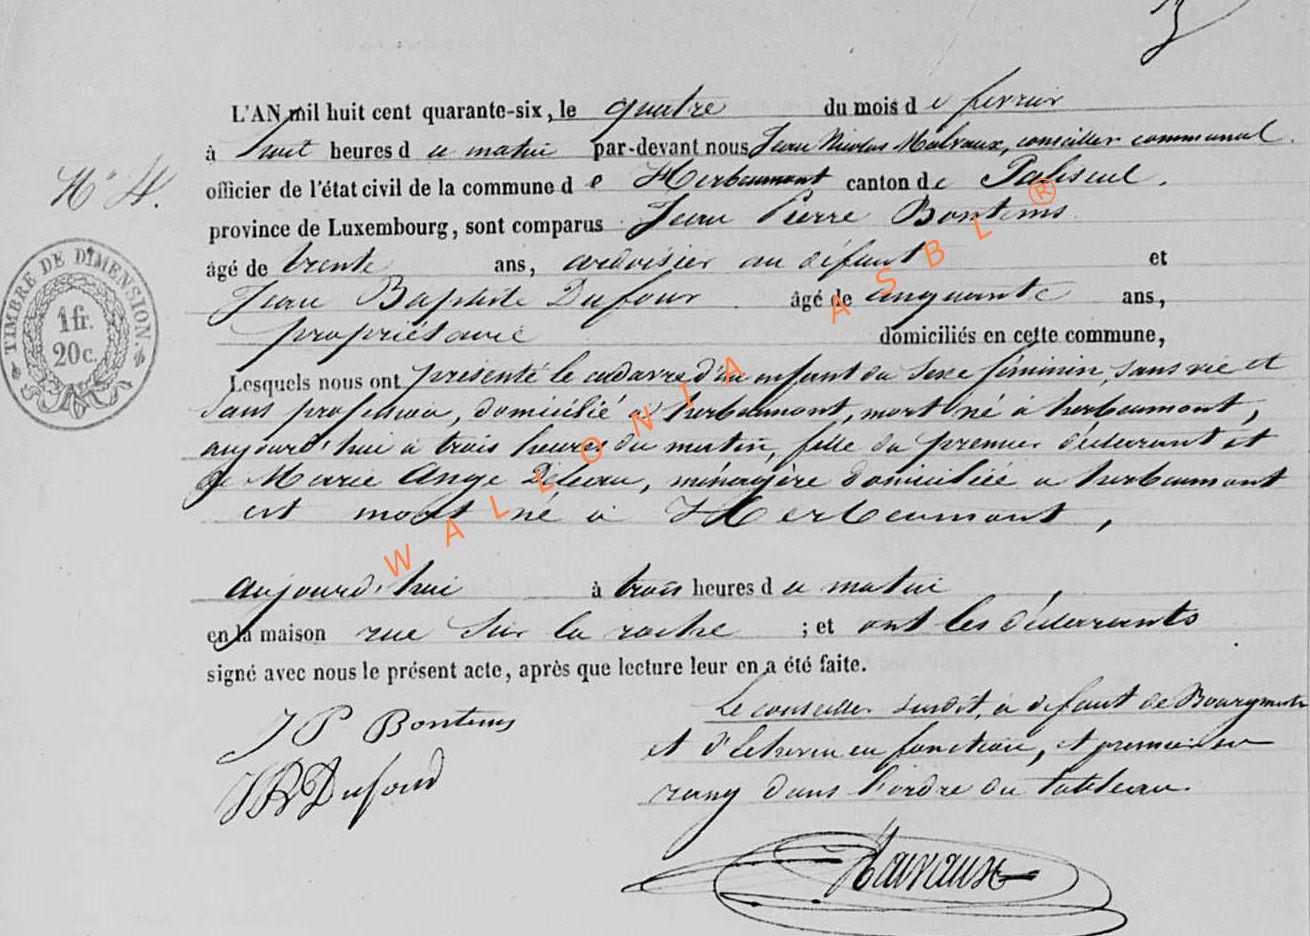 3
L'AN mil huit cent quarante-six, le quatre du mois de fevrier
à huit heures du matin par-devant nous Jean Nicolas Malvaux, conseiller communal
N° 4.
officier de l'état civil de la commune de Herbeumont canton de Paliseul,
province de Luxembourg, sont comparus Jean Pierre Bontems
âgé de trente ans, ardoisier au défunt et
Jean Baptiste Dufour âgé de cinquante ans,
propriétaire domiciliés en cette commune,
TIMBRE DE DIMENSION.
1 fr.
20 c.
Lesquels nous ont présenté le cadavre d'un enfant du sexe féminin, sans vie et
sans profession, domicilié à herbeumont, mort né à herbeumont,
aujourd'hui à trois heures du matin, fille du premier déclarant et
de Marie Ange Déleau, ménagère domiciliée a herbeumont
est mort né à Herbeumont,
aujourd'hui à trois heures du matin
en la maison rue sur la roche ; et ont les déclarants
signé avec nous le présent acte, après que lecture leur en a été faite.
Le conseiller susdit, à defaut de Bourgmestre
et d'Echevin en fonction, et premier en
rang dans l'ordre du tableau.
J P Bontems
JB Dufour
Malvaux
WALLONIA ASBL ®